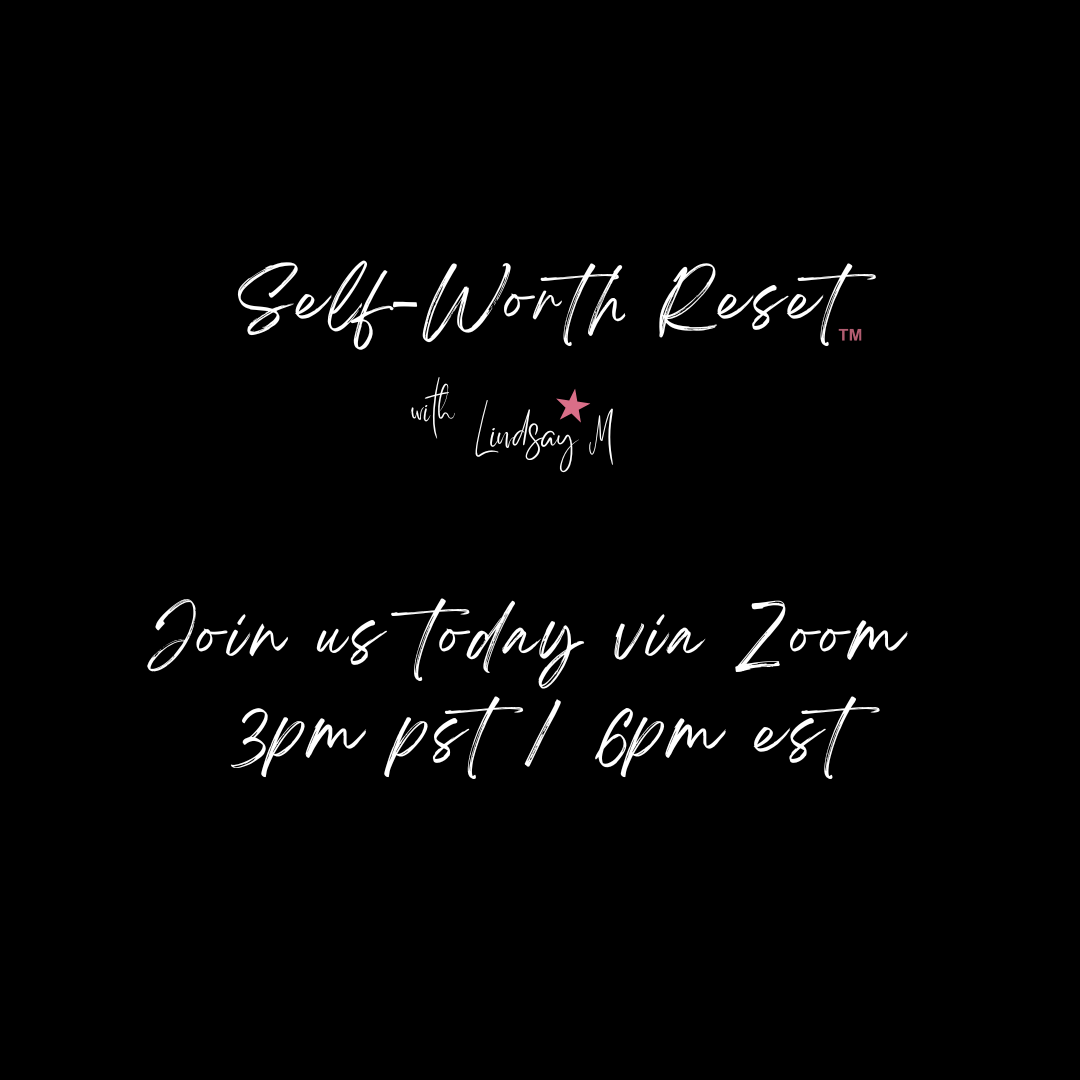 Self-Worth Reset™
with Lindsay M
Join us today via Zoom
3pm pst / 6pm est